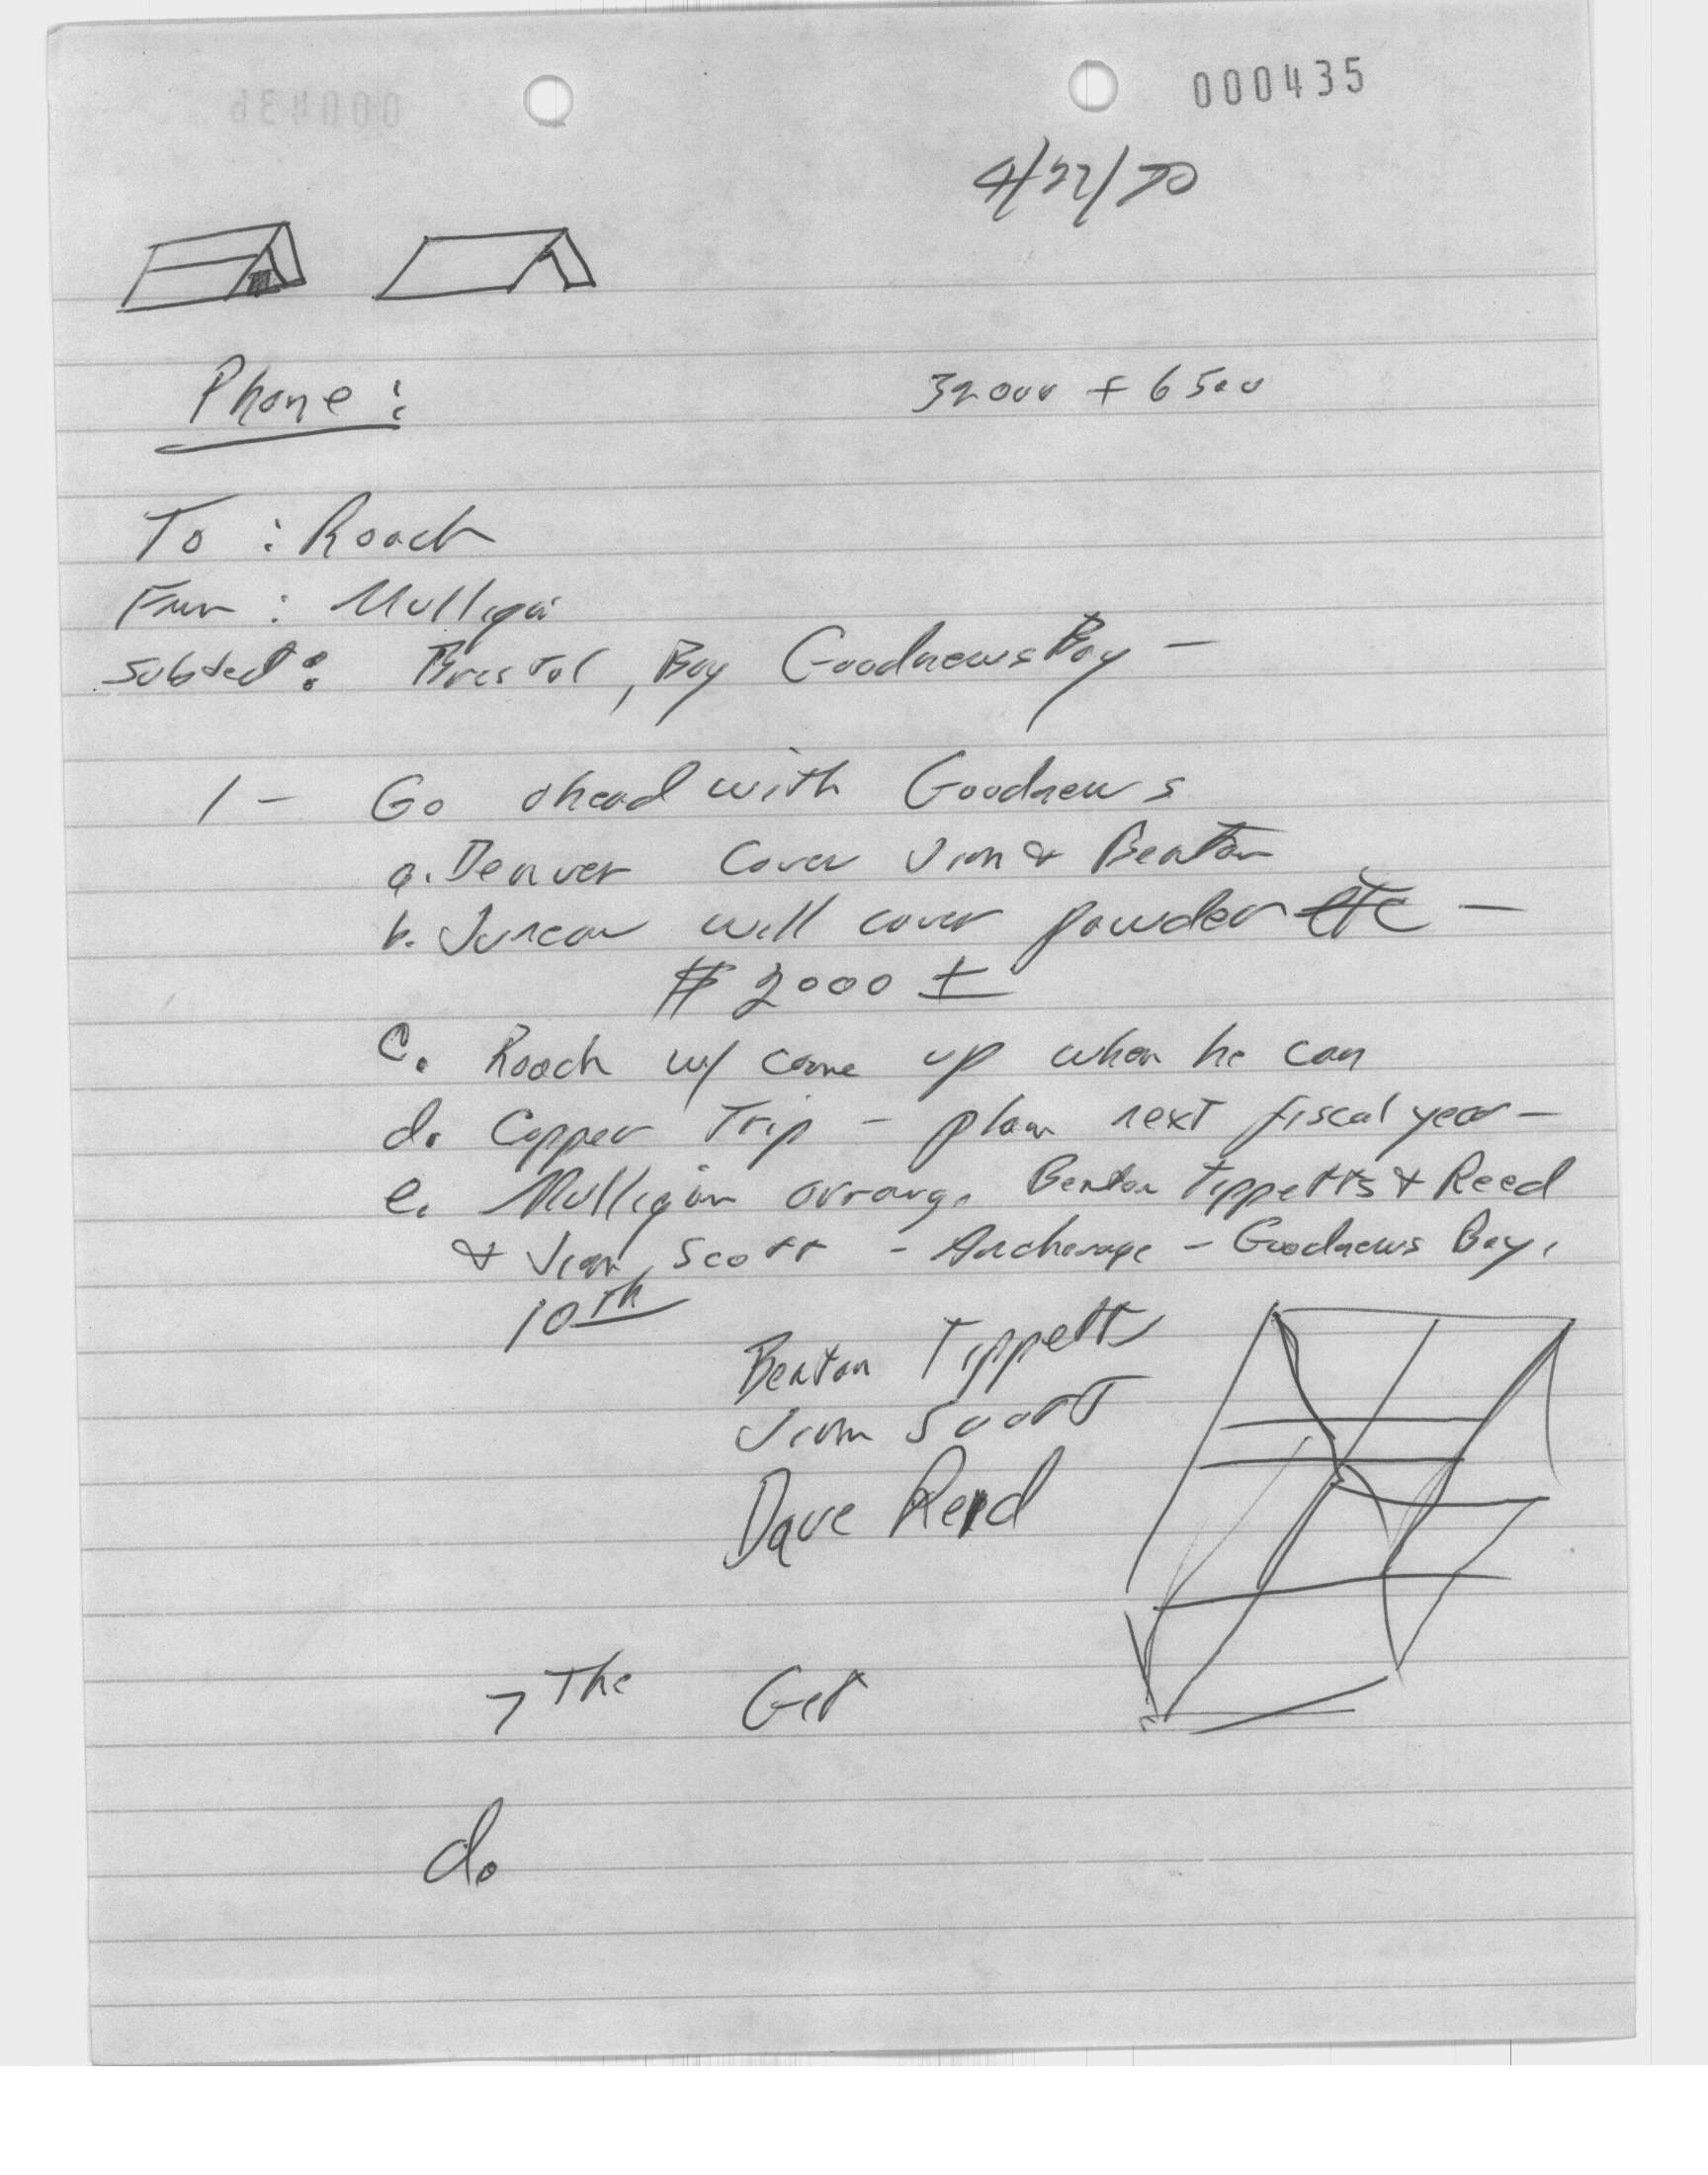 000435
4/22/70
Phone:
32000 + 6500
To: Roach
From: Mulligan
Subject: Bristol, Bay Goodnews Bay -
1- Go ahead with Goodnews
a. Denver Cover Jim & Benton
b. Juneau will cover powder etc -
$2000 ±
C. Roach w/ come up when he can
d. Copper Trip - plan next fiscal year -
e. Mulligan arrange Benton Tippetts & Reed
& Jim Scott - Anchorage - Goodnews Bay.
10th
Benton Tippetts
Jim Scott
Dave Reed
7 The Get
d.